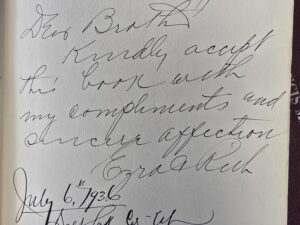 Dear Brother
Kindly accept
this book with
my compliments and
sincere affection
Ezra Rich
July 6th 1936